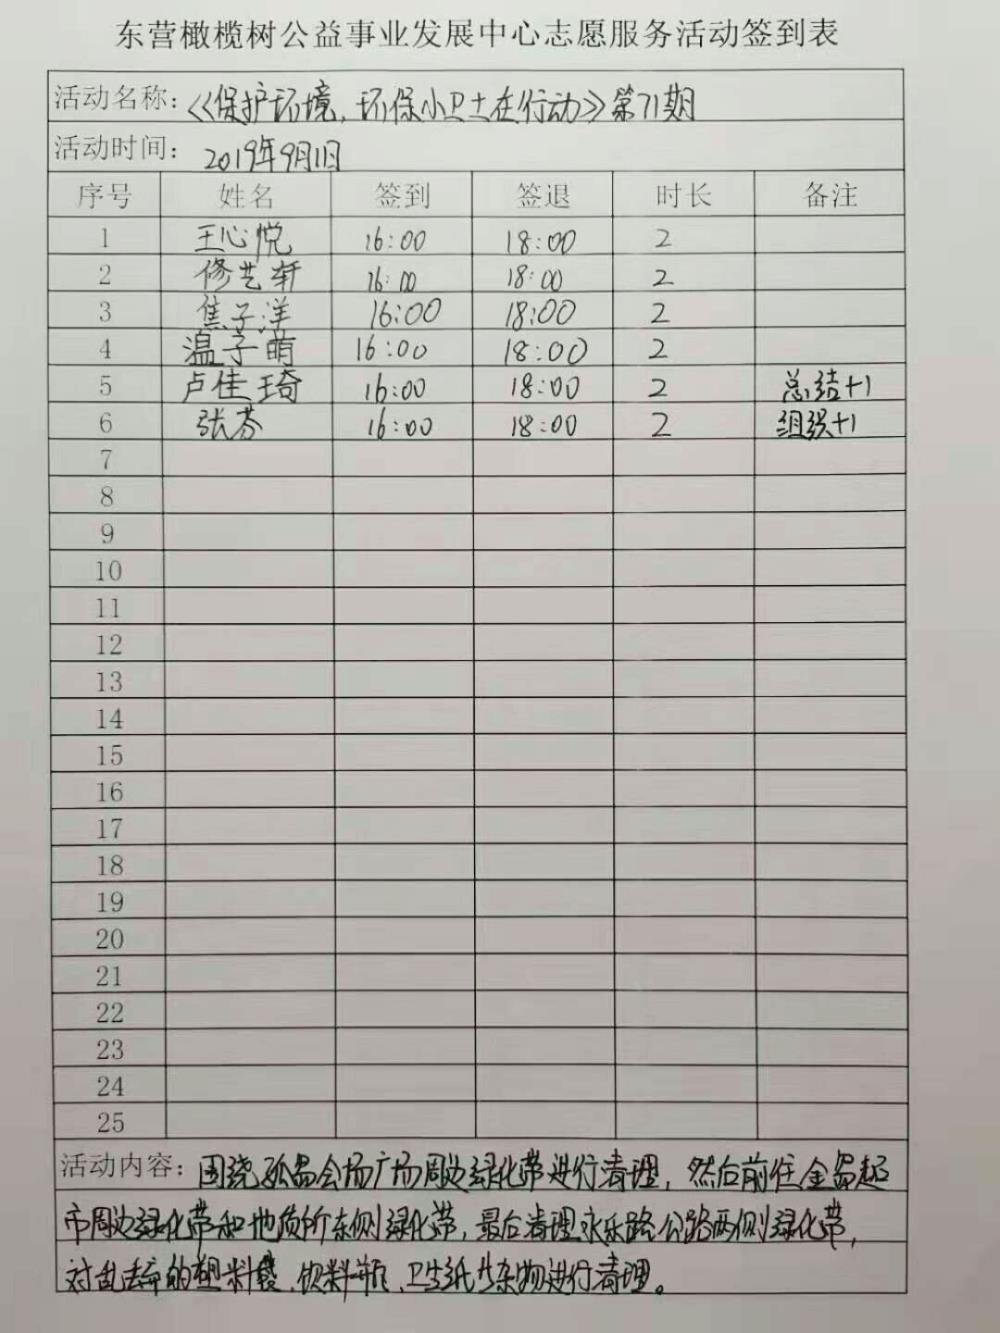 东营橄榄树公益事业发展中心志愿服务活动签到表
活动名称：《保护环境，环保小卫士在行动》第71期
活动时间：2019年9月1日
序号 姓名 签到 签退 时长 备注
1 王心悦 16:00 18:00 2
2 修艺轩 16:00 18:00 2
3 焦子洋 16:00 18:00 2
4 温子萌 16:00 18:00 2
5 卢佳琦 16:00 18:00 2 总结+1
6 张芬 16:00 18:00 2 组织+1
7
8
9
10
11
12
13
14
15
16
17
18
19
20
21
22
23
24
25
活动内容：围绕孤岛会场广场周边绿化带进行清理，然后前往金岛超
市周边绿化带和地质所东侧绿化带，最后清理永乐路公路两侧绿化带，
对乱丢弃的塑料袋、饮料瓶、卫生纸等杂物进行清理。